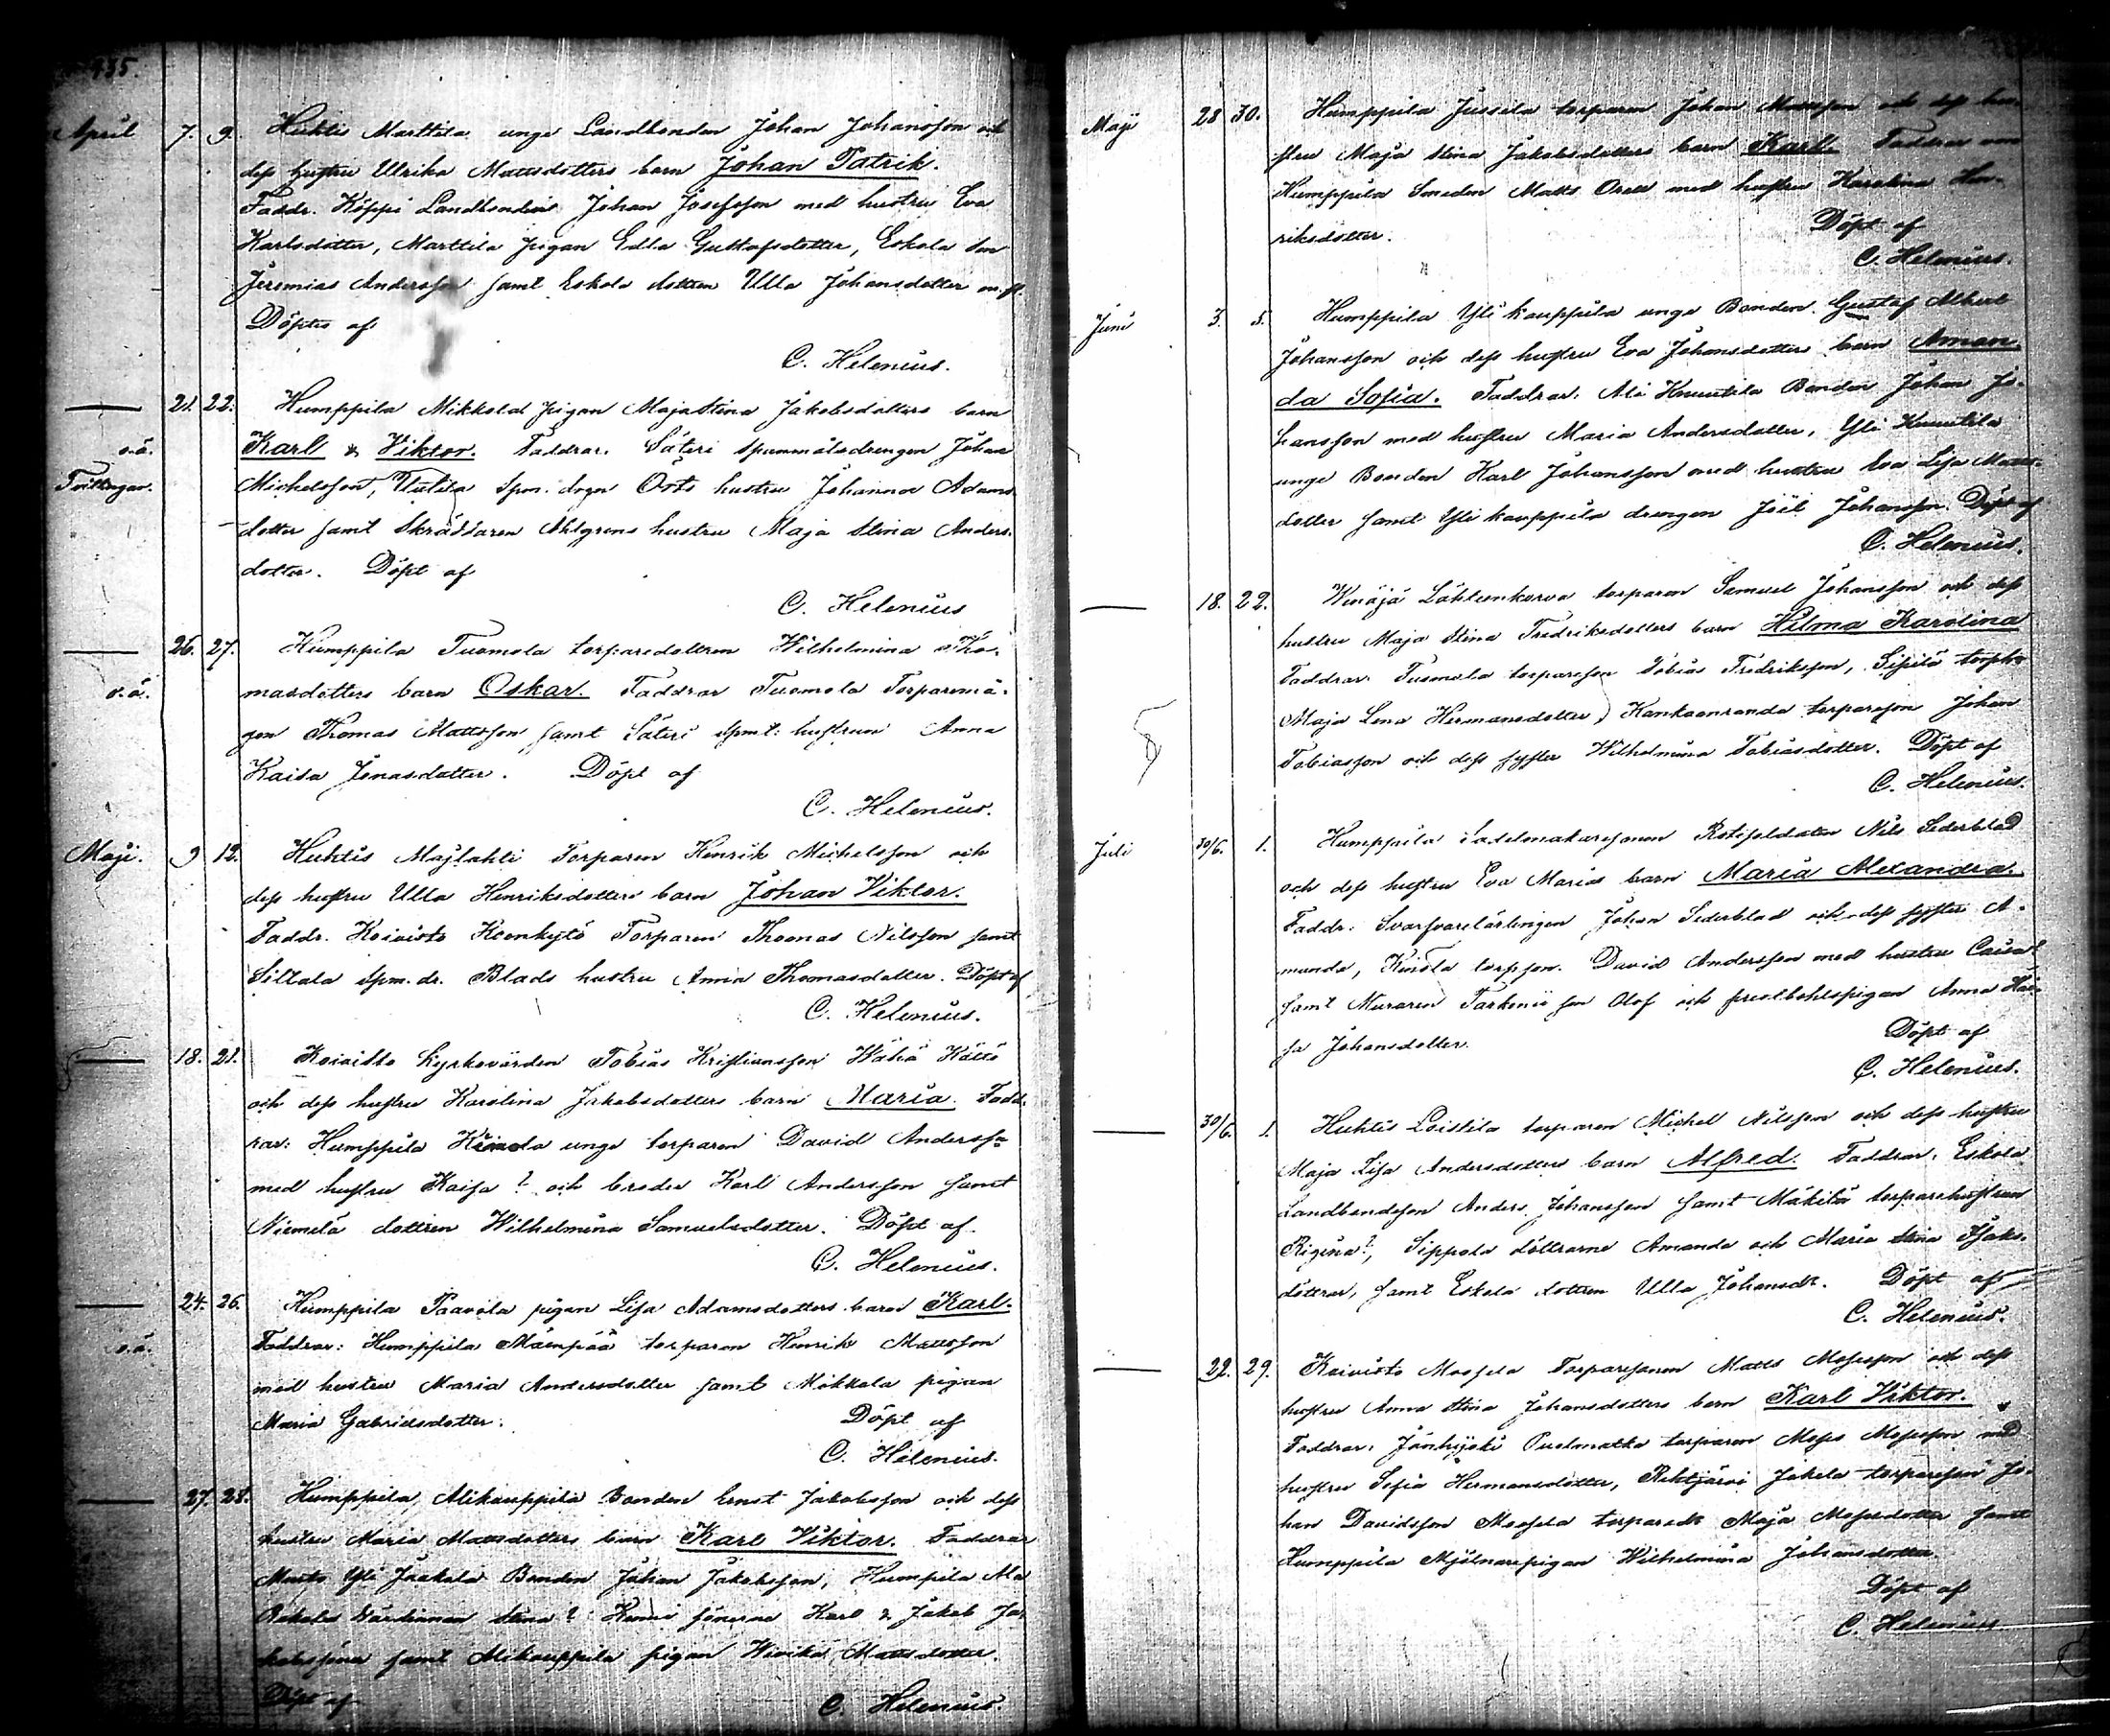 435.
April 7. 9. Huhtis Marttila unge Landbonden Johan Johansson och
dess hustru Ulrika Mattsdotters barn Johan Patrik.
Faddr. Köppi Landbonden Johan Josefsson med hustru Eva
Karlsdotter, Marttila pigan Edla Gustafsdotter, Eskola son
Jeremias Andersson samt Eskola dottren Ulla Johansdotter
Döptes af
C. Helenius.
21. 22. Humppila Mikkola pigan Maja Stina Jakobsdotters barn
o.ä. Karl & Viktor. Faddrar. Säteri Spannmålsdrengen Johan
Tvillingar. Michelsson, Uutela Spm. drgn Örts hustru Johanna Adams
dotter samt Skräddaren Ahlgrens hustru Maja Stina Anders-
dotter. Döpt af
C. Helenius
26. 27. Humppila Tuomola torparedottren Wilhelmina Tho-
o.ä. masdotters barn Oskar. Faddrar Tuomola Torparemå-
gen Thomas Mattsson samt Säteri Spmt. hustrun Anna
Kaisa Jonasdotter. Döpt af
C. Helenius.
Maji. 9 12. Huhtis Majlahti Torparen Henrik Michelsson och
dess hustru Ulla Henriksdotters barn Johan Viktor.
Faddr. Koivisto Keenkytö Torparen Thomas Nilsson samt
Siltala Spm. dr. Blads hustru Anna Thomasdotter. Döpt af
C. Helenius.
18. 21. Koivisto Kyrkovärden Tobias Kristiansson Wähä Kättö
och dess hustru Karolina Jakobsdotters barn Maria. Fadd-
rar: Humppila unge torparen David Andersson
med hustru Kaisa ? och broder Karl Andersson samt
Niemelä dottren Wilhelmina Samuelsdotter. Döpt af.
C. Helenius.
24. 26. Humppila Paavola pigan Lisa Adamsdotters barn Karl.
o.ä. Faddrar: Humppila Mäenpää torparen Henrik Mattsson
med hustru Maria Andersdotter samt Mikkola pigan
Maria Gabrielsdotter. Döpt af
C. Helenius.
27. 28. Humppila, Alikauppila Bonden Ernst Jakobsson och dess
hustru Maria Mattsdotters barn Karl Viktor. Faddrar
Yli Jaakola Bonden Johan Jakobsson, Humpila Ala
Stina ? sönerna Karl & Jakob Ja-
kobssöner samt Alikauppila pigan Wivika Mattsdotter.
Döpt af C. Helenius.
Maji 28 30. Humppila Jussila torparen Johan Mattsson och dess hu-
stru Maja Stina Jakobsdotters barn Karl. Faddrar
Humppila Smeden Matts med hustru Karolina Hen-
riksdotter. Döpt af
C. Helenius.
Juni 3. 5. Humppila Yli kauppila unge Bonden Gustaf Albert
Johansson och dess hustru Eva Johansdotters barn Aman-
da Sofia. Faddrar. Ali Knuutila Bonden Johan Jo-
hansson med hustru Maria Andersdotter, Yli Knuutila
unge Bonden Karl Johansson med hustru Eva Lisa Matts-
dotter samt Yli kauppila drengen Joel Johansson. Döpt af
C. Helenius.
18. 22. Winäjä Lähteenkorva torparen Samuel Johansson och dess
hustru Maja Stina Fredriksdotters barn Hilma Karolina
Faddrar. Tuomola torpareson Tobias Fredriksson, Sipilä
Maja Lena Hermansdotter, Kankaanranda torpareson Johan
Tobiasson och dess syster Wilhelmina Tobiasdotter. Döpt af
C. Helenius.
Juli 30/6. 1. Humppila Sadelmakaresonen Rotesoldaten Nils Sederblad
och dess hustru Eva Marias barn Maria Alexandra.
Faddr. Svarfvarelärlingen Johan Sederblad och dess syster A-
manda, torpson. David Andersson med hustru
samt Muraren son Olof och prestbohlspigan Anna Kai-
sa Johansdotter. Döpt af
C. Helenius.
30/6. 1. Huhtis Loistila torparen Michel Nilsson och dess hustru
Maja Lisa Andersdotters barn Alfred. Faddrar. Eskola
Landbondeson Anders Johansson samt Mäkilä torparehustrun
Rigina ?, Sippola döttrarne Amanda och Maria Stina Isaks-
döttrar, samt Eskola dottren Ulla Johansdr. Döpt af
C. Helenius.
22. 29. Koivisto Moosela Torparesonen Matts Mosesson och dess
hustru Anna Stina Johansdotters barn Karl Viktor.
Faddrar. Jänhijoki torparen Moses Mosesson med
hustru Sofia Hermansdotter, Rehtjärvi Jakela torpareson Jo-
han Davidsson Moosela torparedr Maja Mosesdotter samt
Humppila Mjölnarepigan Wilhelmina Johansdotter.
Döpt af
C. Helenius